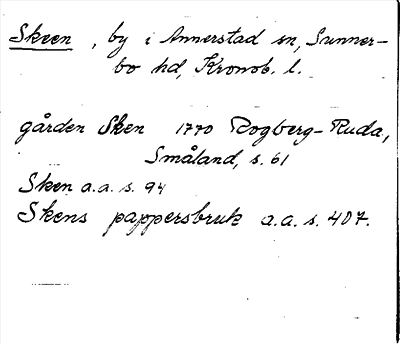 Skeen, by i Annerstad sn, Sunner-
bo hd, Kronob. l.
gården Sken 1770 Rogberg-Ruda,
Småland, s. 61
Sken a.a. s. 94
Skens pappersbruk a.a. s. 407.